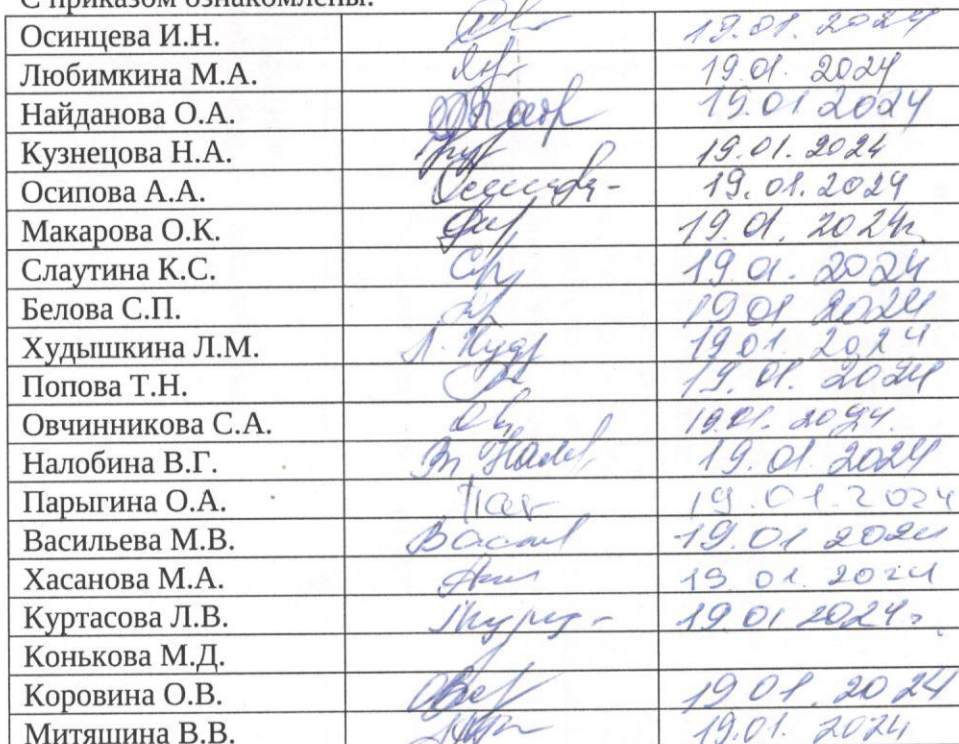 С приказом ознакомлены:
Осинцева И.Н. 19.01.2024
Любимкина М.А. 19.01.2024
Найданова О.А. 19.01.2024
Кузнецова Н.А. 19.01.2024
Осипова А.А. 19.01.2024
Макарова О.К. 19.01.2024г
Слаутина К.С. 19.01.2024
Белова С.П. 19.01.2024
Худышкина Л.М. 19.01.2024
Попова Т.Н. 19.01.2024
Овчинникова С.А. 19.01.2024.
Налобина В.Г. 19.01.2024
Парыгина О.А. 19.01.2024
Васильева М.В. 19.01.2024
Хасанова М.А. 19.01.2024
Куртасова Л.В. 19.01.2024г
Конькова М.Д.
Коровина О.В. 19.01.2024
Митяшина В.В. 19.01.2024